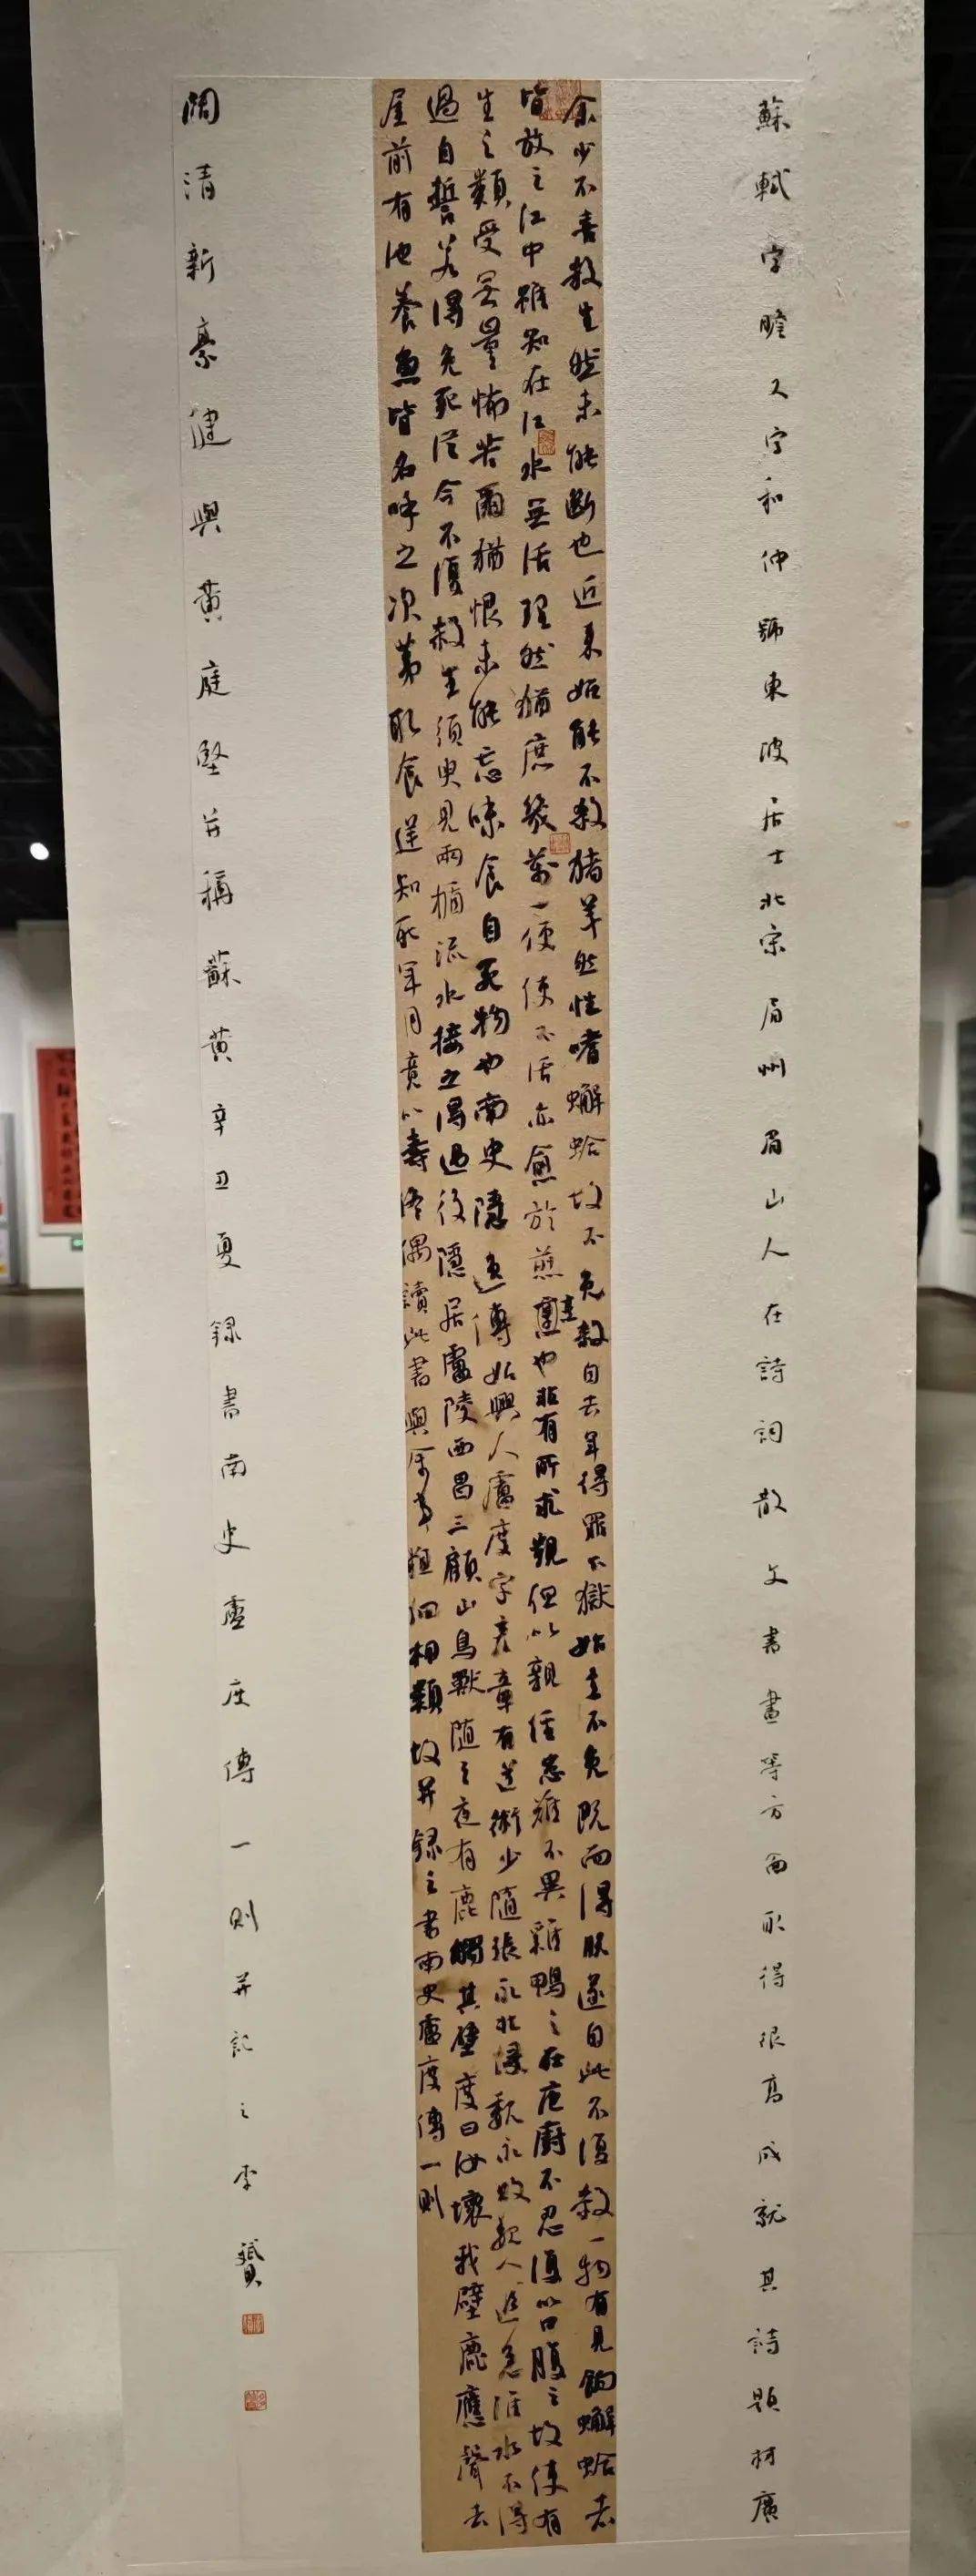 蘇軾字瞻又字和仲號東坡居士北宋眉州眉山人在詩詞散文書畫等方面取得很高成就其詩題材廣
余少不喜殺生然未能斷也近來始能不殺豬羊然性嗜蠏蛤故不免殺自去年得罪下獄始意不免既而得脫遂自此不復殺一物有見餉蠏蛤者
皆放之江中雖知在江水無活理然猶庶幾萬一便使不活亦愈於煎烹也非有所求覬但以親經患難不異雞鴨之在庖廚不忍復以口腹之故使有
生之類受無量怖苦爾猶恨未能忘味食自死物也南史隱逸傳始興人盧度字彥章有道術少隨張永北侵魏永敗魏人追急淮水不得
過自誓若得免死從今不復殺生須臾見兩楯流水接之得過後隱居廬陵西昌三顧山鳥獸隨之夜有鹿觸其壁度曰汝壞我壁鹿應聲去
屋前有池養魚皆名呼之次第取食逆知死年月竟以壽終偶讀此書與余事粗相類故并錄之書南史盧度傳一則
闊清新豪健與黃庭堅并稱蘇黃辛丑夏錄書南史盧度傳一則并記之李贇